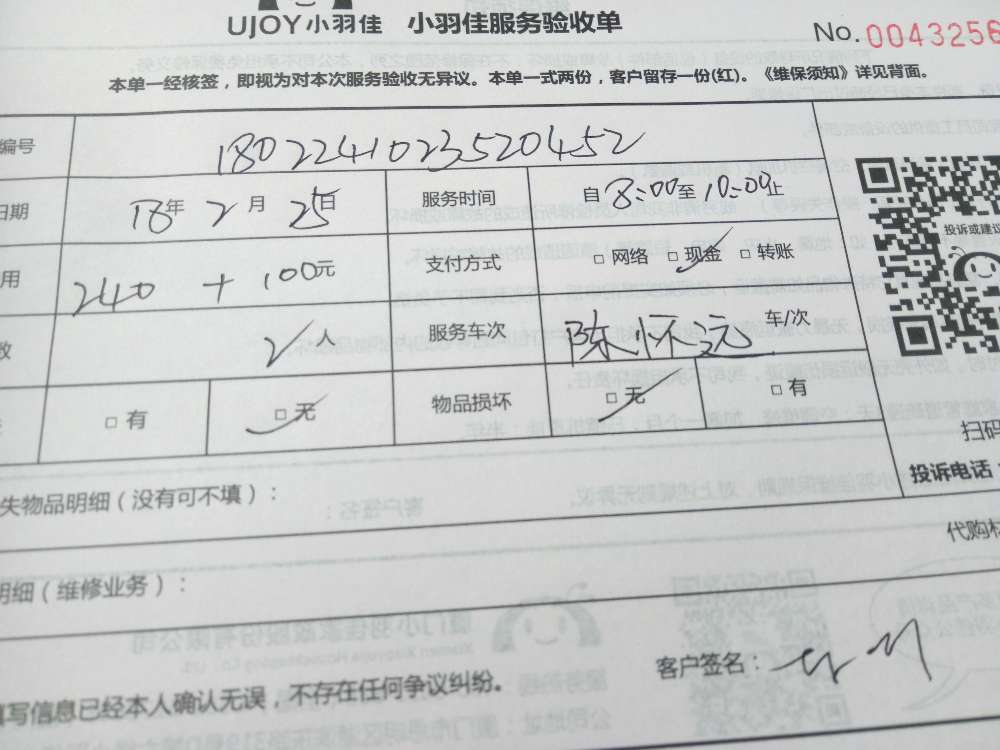 UJOY小羽佳 小羽佳服务验收单
No.0043256
本单一经核签，即视为对本次服务验收无异议。本单一式两份，客户留存一份(红)。《维保须知》详见背面。
编号 180224102352045​2
日期 18年2月25日 服务时间 自8:00至10:00止
用 240+100元 支付方式 □网络 □现金 □转账
数 2人 服务车次 陈怀 车/次
□有 □无 物品损坏 □无 □有
投诉或建议
扫码
投诉电话：
失物品明细（没有可不填）：
代购材
明细（维修业务）：
填写信息已经本人确认无误，不存在任何争议纠纷。
客户签名：